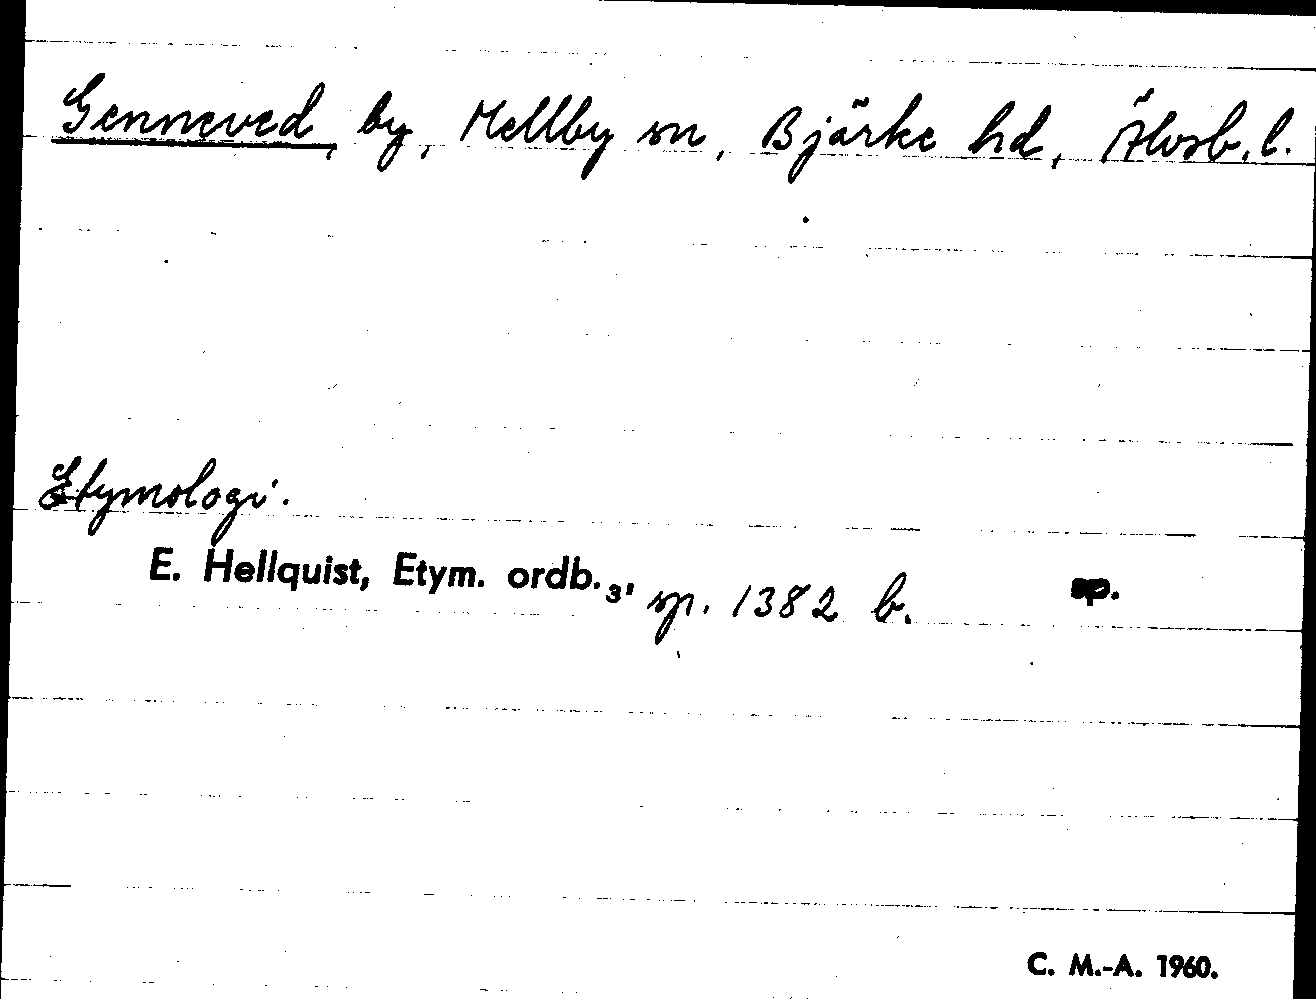 Genneved, by, Mellby sn, Bjärke hd, Älvsb. l.
Etymologi.
E. Hellquist, Etym. ordb.₃, sp. 1382 b. sp.
C. M.-A. 1960.